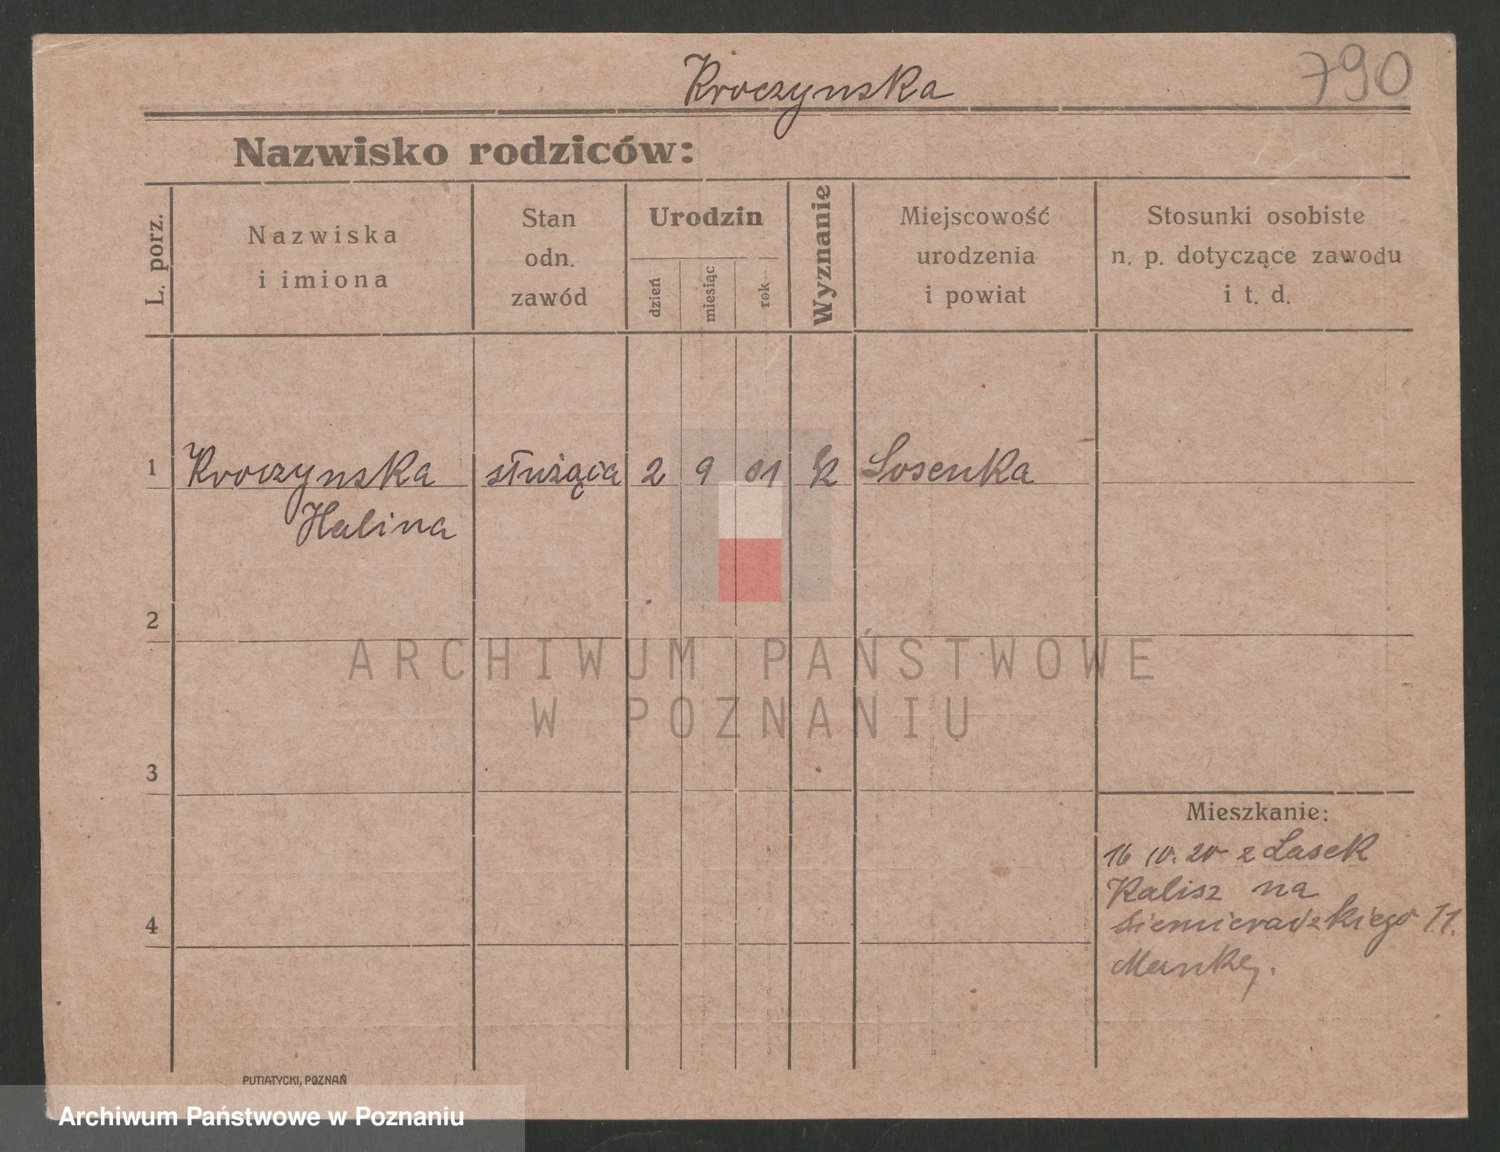 Kroczynska
790
Nazwisko rodziców:
L. porz.
Nazwiska
i imiona
Stan
odn.
zawód
Urodzin
dzień
miesiąc
rok
Wyznanie
Miejscowość
urodzenia
i powiat
Stosunki osobiste
n. p. dotyczące zawodu
i t. d.
1 Kroczynska służąca 2 9 01 Losenka
Halina
2
3
Mieszkanie:
16 10. 20 z Lasek
Kalisz na
4
Siemieradzkiego 11.
PUTIATYCKI, POZNAŃ
ARCHIWUM PAŃSTWOWE
W POZNANIU
Archiwum Państwowe w Poznaniu